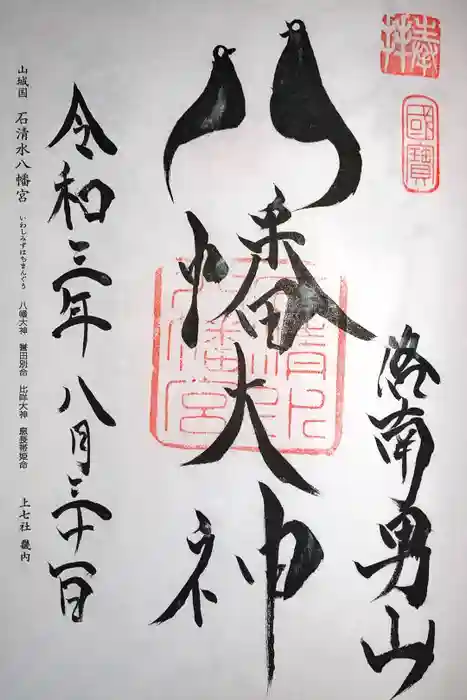 奉拝
國寶
洛南男山
八幡大神
石清水八幡宮
令和三年八月三十一日
山城国 石清水八幡宮 いわしみずはちまんぐう 八幡大神 誉田別命 比咩大神 息長帯姫命 上七社 畿内